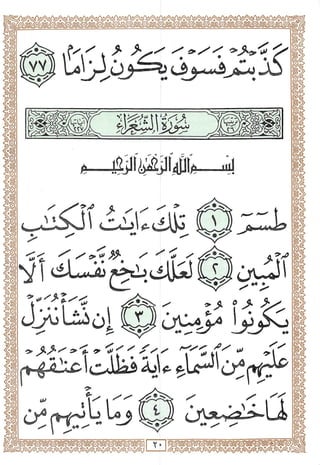 كَذَّبۡتُمۡ فَسَوۡفَ يَكُونُ لِزَامَۢا ٧٧
سُورَةُ الشُّعَرَاءِ
بِسۡمِ ٱللَّهِ ٱلرَّحۡمَٰنِ ٱلرَّحِيمِ
طسٓمٓ ١ تِلۡكَ ءَايَٰتُ ٱلۡكِتَٰبِ
ٱلۡمُبِينِ ٢ لَعَلَّكَ بَٰخِعٞ نَّفۡسَكَ أَلَّا
يَكُونُواْ مُؤۡمِنِينَ ٣ إِن نَّشَأۡ نُنَزِّلۡ
عَلَيۡهِم مِّنَ ٱلسَّمَآءِ ءَايَةٗ فَظَلَّتۡ أَعۡنَٰقُهُمۡ
لَهَا خَٰضِعِينَ ٤ وَمَا يَأۡتِيهِم مِّن
٢٠